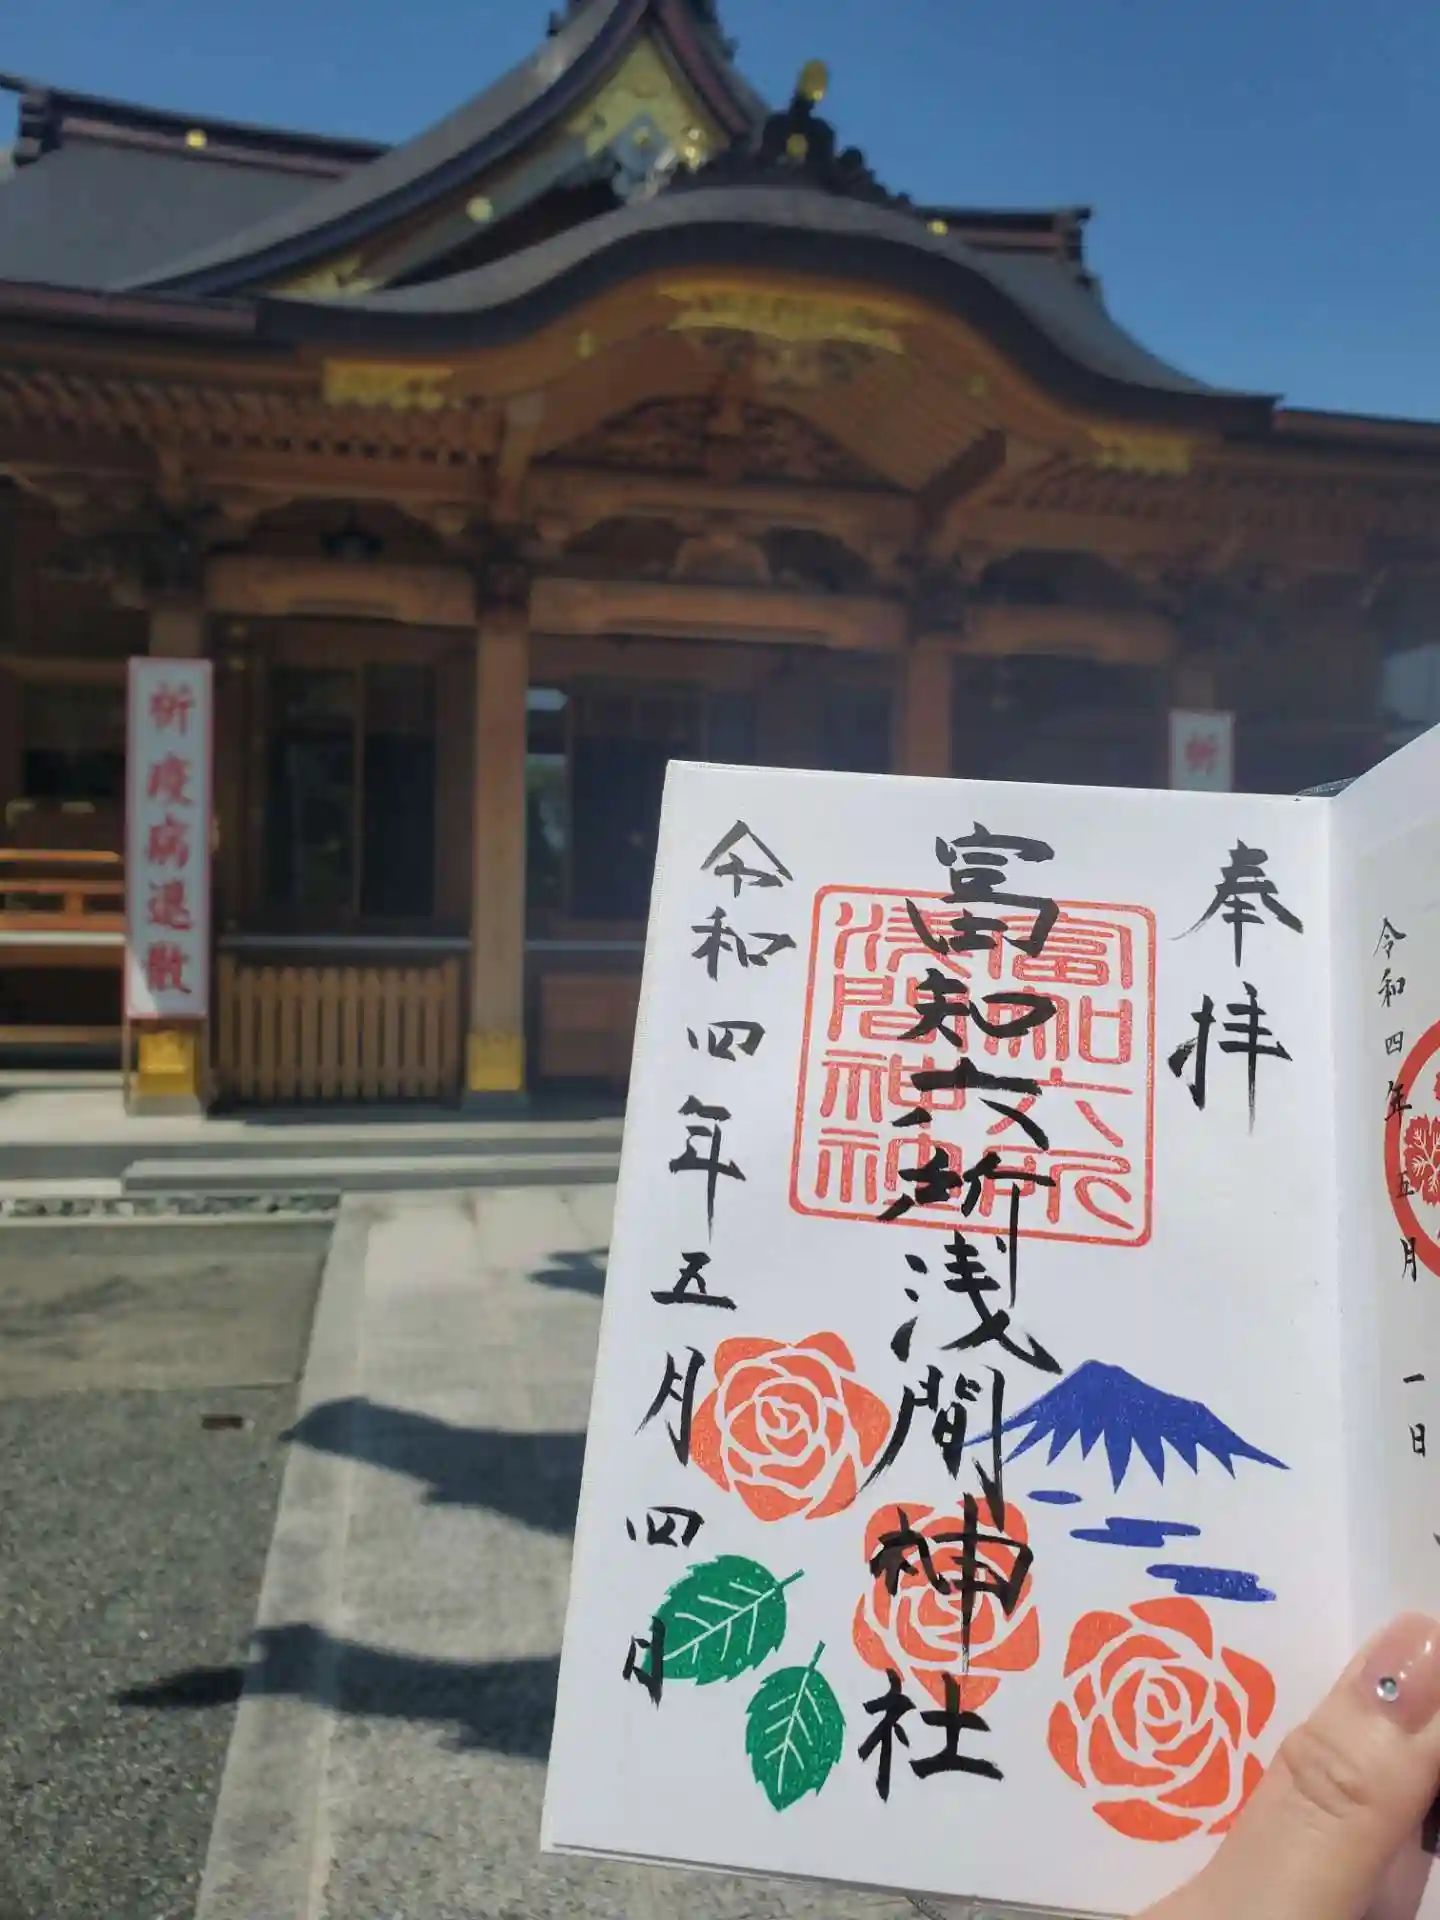 祈疫病退散
祈
奉拝
富知六所浅間神社
富知六所
浅間神社
令和四年五月四日
令和四年五月一日